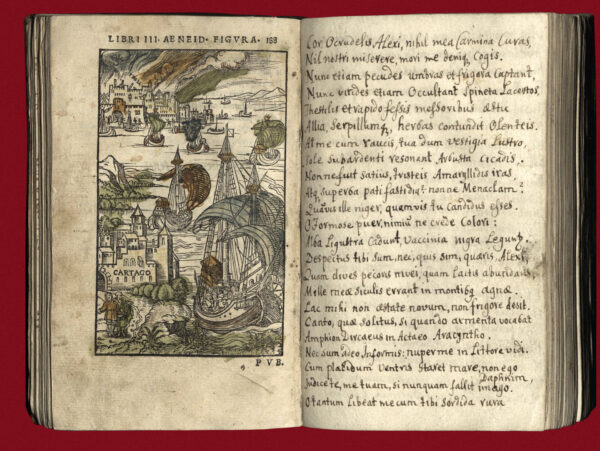 LIBRI III. AENEID. FIGVRA. 183
CARTAGO
P V B.
Cor O crudelis Alexi, nihil mea Carmina Curas,
Nil nostri miserere, mori me deniq; Cogis.
Nunc etiam pecudes umbras et frigora Captant,
Nunc virides etiam Occultant Spineta Lacertos,
Thestilis et rapido fessis messoribus æstu
Allia, serpillumq, herbas contundit Olenteis.
At me cum raucis, tua dum vestigia Lustro,
Sole Sub ardenti resonant Arbusta Cicadis.
Nonne fuit satius, tristeis Amaryllidis iras,
Atq; Superba pati fastidia; nonne Menaclam?
Quamvis ille niger, quamvis tu Candidus esses.
O Formose puer, nimiũ ne crede Colori:
Alba Ligustra Cadunt, Vaccinia nigra Leguntz.
Despectus tibi sum, nec, qui sim, quæris, Alexi,
Quam dives pecoris nivei, quam lactis abundans,
Mille meæ siculis errant in montibq agnæ.
Lac mihi non æstate novum, non frigore desit.
Canto, quæ solitus, si quando armenta vocabat
Amphion Dircaeus in Actaeo Aracyntho.
Nec sum adeo Informis: nuper me in Littore vidi,
Cum placidum ventris staret mare, non ego
Daphnim,
Judice te, metuam, si nunquam fallit imago.
O tantum Libeat mecum tibi Sordida rura